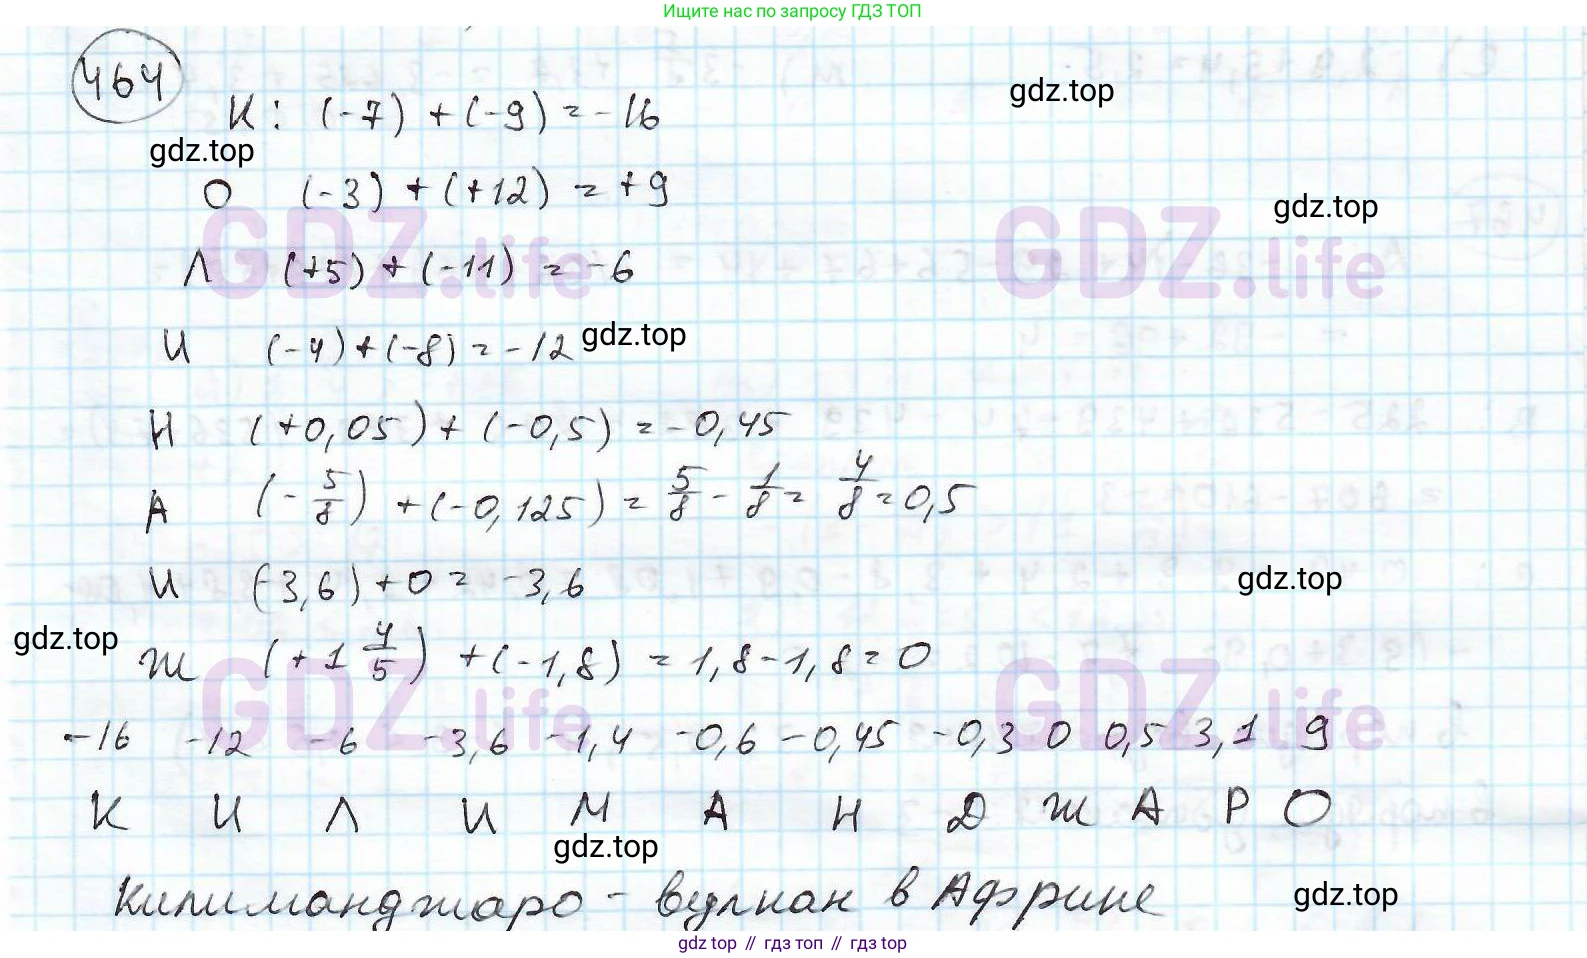 Ищите нас по запросу ГДЗ ТОП
464
К: (-7) + (-9) = -16
gdz.top
gdz.top
О (-3) + (+12) = +9
gdz.top
GDZ.life GDZ.life
Л (+5) + (-11) = -6
И (-4) + (-8) = -12
gdz.top
Н (+0,05) + (-0,5) = -0,45
А (-5/8) + (-0,125) = 5/8 - 1/8 = 4/8 = 0,5
И (-3,6) + 0 = -3,6
gdz.top
gdz.top
Ж (+1 4/5) + (-1,8) = 1,8 - 1,8 = 0
GDZ.life GDZ.life
-16 -12 -6 -3,6 -1,4 -0,6 -0,45 -0,3 0 0,5 3,1 9
К И Л И М А Н Д Ж А Р О
gdz.top
Килиманджаро - вулкан в Африке
gdz.top
gdz top // гдз топ // gdz top